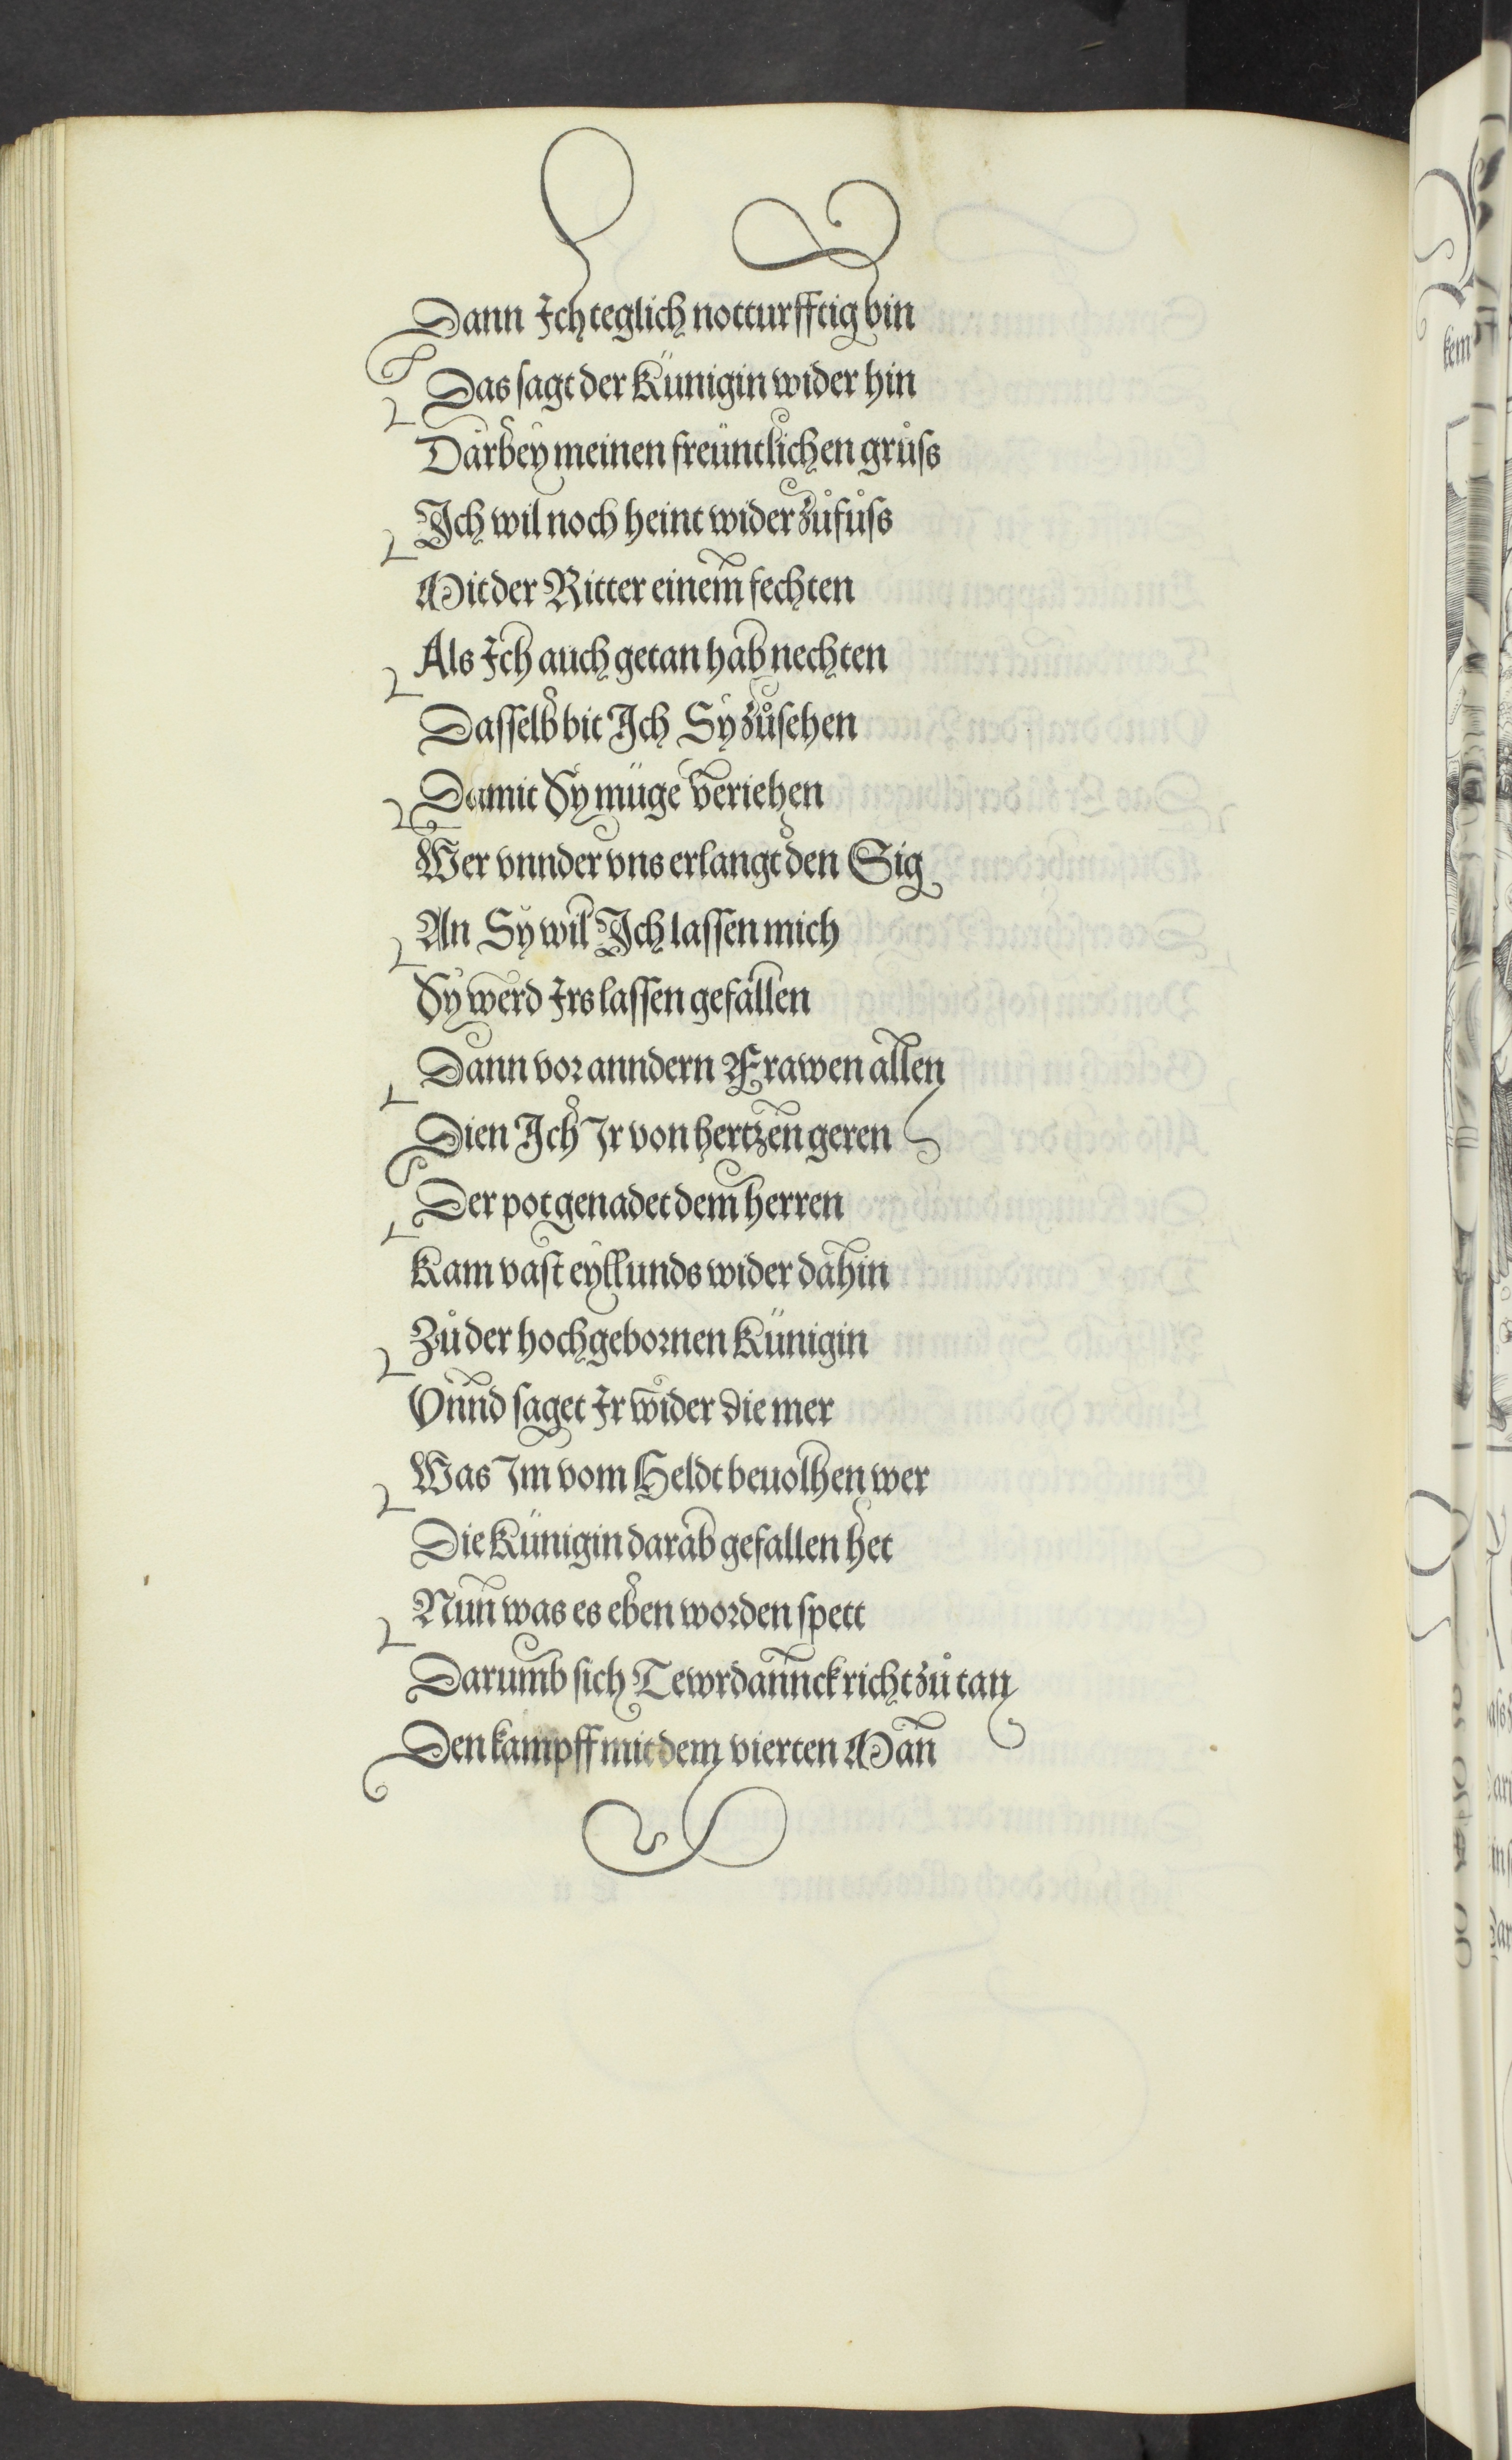 Dann Ich teglich notturfftig bin
Das sagt der Künigin wider hin
Darbey meinen freüntlichen grůſs
Ich wil noch heint wider zůfůſs
Mit der Ritter einem fechten
Als Ich auch getan hab nechten
Daſſelb bit Ich Sy zůſehen
Damit Sy müge veriehen
Wer vnnder vns erlangt den Sig
An Sy wil Ich laſſen mich
Sy werd Irs laſſen gefallen
Dann vor anndern Frawen allen
Dien Ich Ir von hertzen geren
Der pot genadet dem herren
Kam vaſt eyllunds wider dahin
Zů der hochgebornen Künigin
Vnnd ſaget Ir wider die mer
Was Im vom Heldt beuolhen wer
Die Künigin darab gefallen het
Nun was es eben worden ſpett
Darumb ſich Tewrdannck richt zů tan
Den kampff mit dem vierten Man